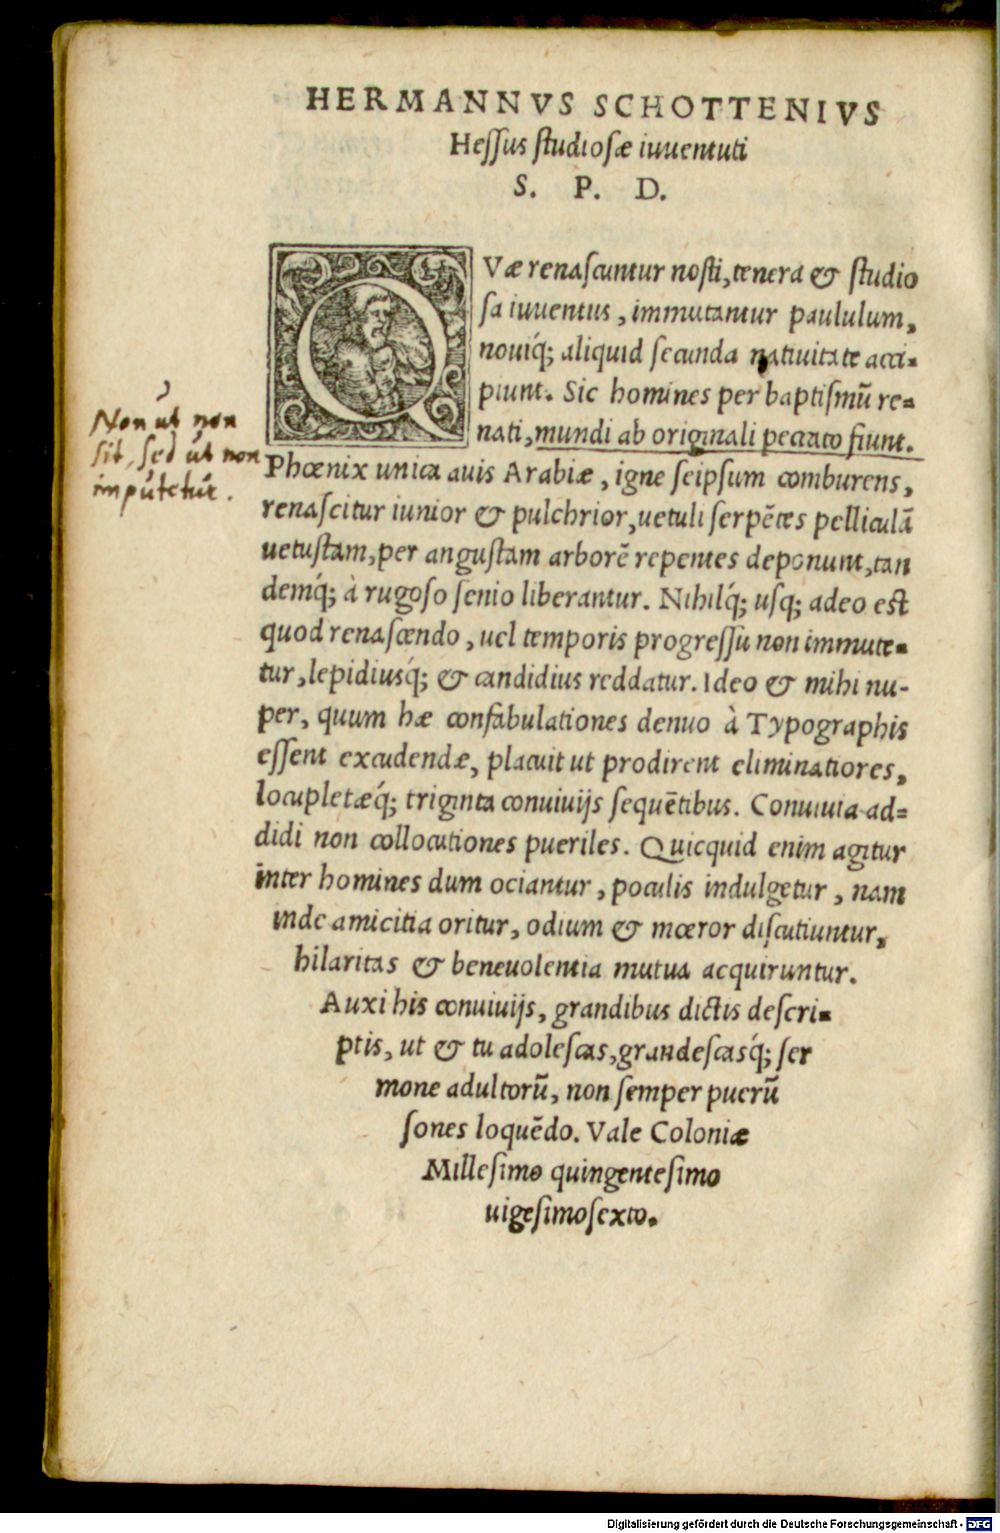 HERMANNVS SCHOTTENIVS
Hessus studiosæ iuuentuti
S. P. D.
QVæ renascuntur nosti, tenera & studio
sa iuuentus, immutantur paululum,
nouiq́; aliquid secunda natiuitate acci-
piunt. Sic homines per baptismū re-
nati, mundi ab originali peccato fiunt.
Non ut non
sit, sed ut non
imputetur.
Phœnix unica auis Arabiæ, igne seipsum comburens,
renascitur iunior & pulchrior, uetuli serpẽtes pelliculã
uetustam, per angustam arborẽ repentes deponunt, tan
demq́; à rugoso senio liberantur. Nihilq́; usq; adeo est
quod renascendo, uel temporis progressu non immute-
tur, lepidiusq́; & candidius reddatur. Ideo & mihi nu-
per, quum hæ confabulationes denuo à Typographis
essent excudendæ, placuit ut prodirent eliminatiores,
locupletæq́; triginta conuiuijs sequẽtibus. Conuiuia ad-
didi non collocutiones pueriles. Quicquid enim agitur
inter homines dum ociantur, poculis indulgetur, nam
inde amicitia oritur, odium & mœror discutiuntur,
hilaritas & beneuolentia mutua acquiruntur.
Auxi his conuiuijs, grandibus dictis descri-
ptis, ut & tu adolescas, grandescasq́; ser
mone adultorū, non semper puerū
sones loquẽdo. Vale Coloniæ
Millesimo quingentesimo
uigesimosexto.
Digitalisierung gefördert durch die Deutsche Forschungsgemeinschaft - DFG